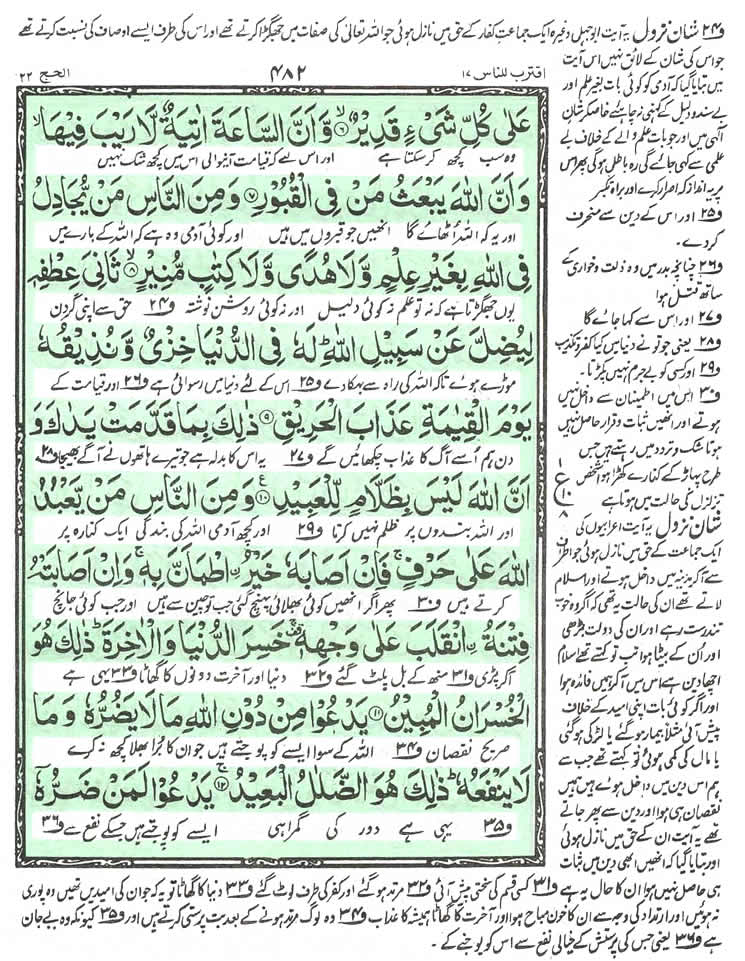 و۲۴ شان نزول یہ آیت ابوجہل وغیرہ ایک جماعت کفار کے حق میں نازل ہوئی جو اللہ تعالٰی کی صفات میں جھگڑا کرتے تھے اور اس کی طرف ایسے اوصاف کی نسبت کرتے تھے
جو اس کی شان کے لائق نہیں اس آیت
میں بتایا گیا کہ آدمی کو کوئی بات بغیر علم اور
بے سند و دلیل کے کہنی نہ چاہئے خاصکر شان
الٰہی میں اور جو بات علم والے کے خلاف بے
علمی سے کہی جائے گی وہ باطل ہوگی پھر اس
پر یہ انداز کہ اصرار کرے اور براہ تکبر
و۲۵ اور اس کے دین سے منحرف
کردے۔
و۲۶ چنانچہ بدر میں وہ ذلت و خواری کے
ساتھ قتل ہوا
و۲۷ اور اس سے کہا جائے گا
و۲۸ یعنی جو تو نے دنیا میں کیا کفر و تکذیب
و۲۹ اور کسی کو بے جرم نہیں پکڑتا۔
و۳۰ اس میں اطمینان سے داخل نہیں
ہوتے اور انھیں ثبات و قرار حاصل نہیں
ہوتا شک و تردد میں رہتے ہیں جس
طرح پہاڑ کے کنارے کھڑا ہوا شخص
تزلزل کی حالت میں ہوتا ہے
شان نزول یہ آیت اعرابیوں کی
ایک جماعت کے حق میں نازل ہوئی جو اطراف
سے آکر مدینہ میں داخل ہوتے اور اسلام
لاتے تھے ان کی حالت یہ تھی کہ اگر وہ خوب
تندرست رہے اور ان کی دولت بڑھی
اور اُن کے بیٹا ہوا تب تو کہتے تھے اسلام
اچھا دین ہے اس میں آکر ہمیں فائدہ ہوا
اور اگر کوئی بات اپنی امید کے خلاف
پیش آئی مثلاً بیمار ہوگئے یا لڑکی ہوگئی
یا مال کی کمی ہوئی تو کہتے تھے جب سے
ہم اس دین میں داخل ہوئے ہیں ہمیں
نقصان ہی ہوا اور دین سے پھر جاتے
تھے یہ آیت ان کے حق میں نازل ہوئی
اور بتایا گیا کہ انھیں ابھی دین میں ثبات
اقترب للناس ۱۷
۴۸۲
الحج ۲۲
عَلٰى كُلِّ شَیْءٍ قَدِیْرٌۙ۝۶ وَّ اَنَّ السَّاعَةَ اٰتِیَةٌ لَّا رَیْبَ فِیْهَاۙ
وہ سب کچھ کرسکتا ہے اور اس لئے کہ قیامت آنیوالی اس میں کچھ شک نہیں
وَ اَنَّ اللّٰهَ یَبْعَثُ مَنْ فِی الْقُبُوْرِ۝۷ وَ مِنَ النَّاسِ مَنْ یُّجَادِلُ
اور یہ کہ اللہ اُٹھائے گا انھیں جو قبروں میں ہیں اور کوئی آدمی وہ ہے کہ اللہ کے بارے میں
فِی اللّٰهِ بِغَیْرِ عِلْمٍ وَّ لَا هُدًى وَّ لَا كِتٰبٍ مُّنِیْرٍۙ۝۸ ثَانِیَ عِطْفِهٖ
یوں جھگڑتا ہے کہ نہ تو علم نہ کوئی دلیل اور نہ کوئی روشن نوشتہ و۲۴ حق سے اپنی گردن
لِیُضِلَّ عَنْ سَبِیْلِ اللّٰهِؕ لَهٗ فِی الدُّنْیَا خِزْیٌ وَّ نُذِیْقُهٗ
موڑے ہوئے تاکہ اللہ کی راہ سے بہکادے و۲۵ اس کے لئے دنیا میں رسوائی ہے و۲۶ اور قیامت کے
یَوْمَ الْقِیٰمَةِ عَذَابَ الْحَرِیْقِ۝۹ ذٰلِكَ بِمَا قَدَّمَتْ یَدٰكَ وَ
دن ہم اُسے آگ کا عذاب چکھائیں گے و۲۷ یہ اس کا بدلہ ہے جو تیرے ہاتھوں نے آگے بھیجا و۲۸
اَنَّ اللّٰهَ لَیْسَ بِظَلَّامٍ لِّلْعَبِیْدِ۠۝۱۰ وَ مِنَ النَّاسِ مَنْ یَّعْبُدُ
اور اللہ بندوں پر ظلم نہیں کرتا و۲۹ اور کچھ آدمی اللہ کی بندگی ایک کنارہ پر
اللّٰهَ عَلٰى حَرْفٍۚ فَاِنْ اَصَابَهٗ خَیْرُ ِ۟اطْمَاَنَّ بِهٖۚ وَ اِنْ اَصَابَتْهُ
کرتے ہیں و۳۰ پھر اگر انھیں کوئی بھلائی پہنچ گئی جب تو چین سے ہیں اور جب کوئی جانچ
فِتْنَةُ ِ۟انْقَلَبَ عَلٰى وَجْهِهٖۚ خَسِرَ الدُّنْیَا وَ الْاٰخِرَةَؕ ذٰلِكَ هُوَ
آکر پڑی و۳۱ منھ کے بل پلٹ گئے و۳۲ دنیا اور آخرت دونوں کا گھاٹا و۳۳ یہی ہے
الْخُسْرَانُ الْمُبِیْنُ۝۱۱ یَدْعُوْا مِنْ دُوْنِ اللّٰهِ مَا لَا یَضُرُّهٗ وَ مَا
صریح نقصان و۳۴ اللہ کے سوا ایسے کو پوجتے ہیں جو ان کا بُرا بھلا کچھ نہ کرے
لَا یَنْفَعُهٗؕ ذٰلِكَ هُوَ الضَّلٰلُ الْبَعِیْدُۚ۝۱۲ یَدْعُوْا لَمَنْ ضَرُّهٗۤ
و۳۵ یہی ہے دور کی گمراہی ایسے کو پوجتے ہیں جسکے نفع سے و۳۶
ہی حاصل نہیں ہوا ان کا حال یہ ہے و۳۱ کسی قسم کی سختی پیش آئی و۳۲ مرتد ہوگئے اور کفر کی طرف لوٹ گئے و۳۳ دنیا کا گھاٹا تو یہ کہ جو ان کی امیدیں تھیں وہ پوری
نہ ہوئیں اور ارتداد کی وجہ سے ان کا خون مباح ہوا اور آخرت کا گھاٹا ہمیشہ کا عذاب و۳۴ وہ لوگ مرتد ہونے کے بعد بت پرستی کرتے ہیں اور و۳۵ کیونکہ وہ بے جان
ہے و۳۶ یعنی جس کی پرستش کے خیالی نفع سے اس کو پوجنے کے۔